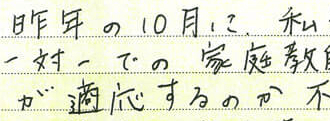 昨年の10月に、私
一対一での家庭教
が適応するのか不